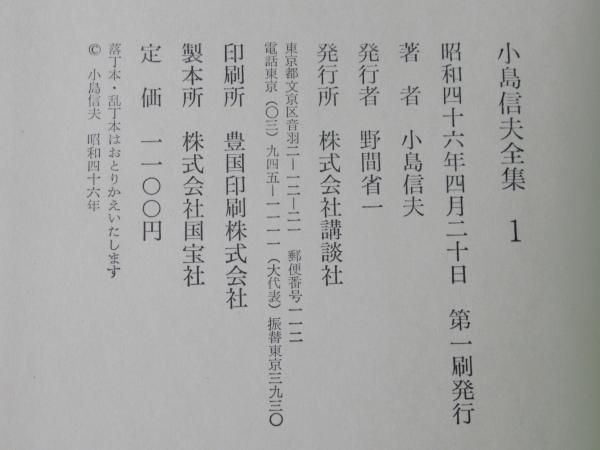 小島信夫全集 1
昭和四十六年四月二十日 第一刷発行
著者 小島信夫
発行者 野間省一
発行所 株式会社講談社
東京都文京区音羽二—一二—二一 郵便番号一一二
電話東京(〇三)九四五—一一一一(大代表)振替東京三九三〇
印刷所 豊国印刷株式会社
製本所 株式会社国宝社
定価 一一〇〇円
落丁本・乱丁本はおとりかえいたします
© 小島信夫 昭和四十六年